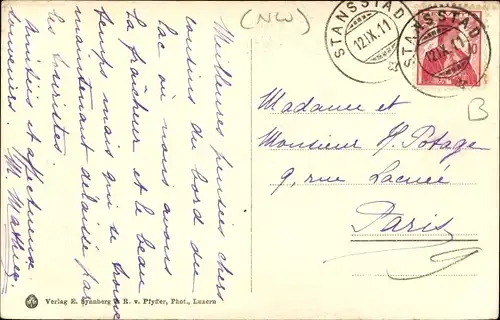 (NW)
STANSSTAD
12.IX.11
STANSSTAD
12.IX.11
10
B
Meilleures pensées chers
cousins du bord du
lac où nous avons
la fraîcheur et le beau
temps mais qui se trouve
maintenant délaissé par
les touristes.
Amitiés et affectueux
souvenirs. M. Mathieu
Madame et
Monsieur H. Potage
9, rue Lacuée
Paris
Verlag E. Synnberg & R. v. Pfyffer, Phot., Luzern